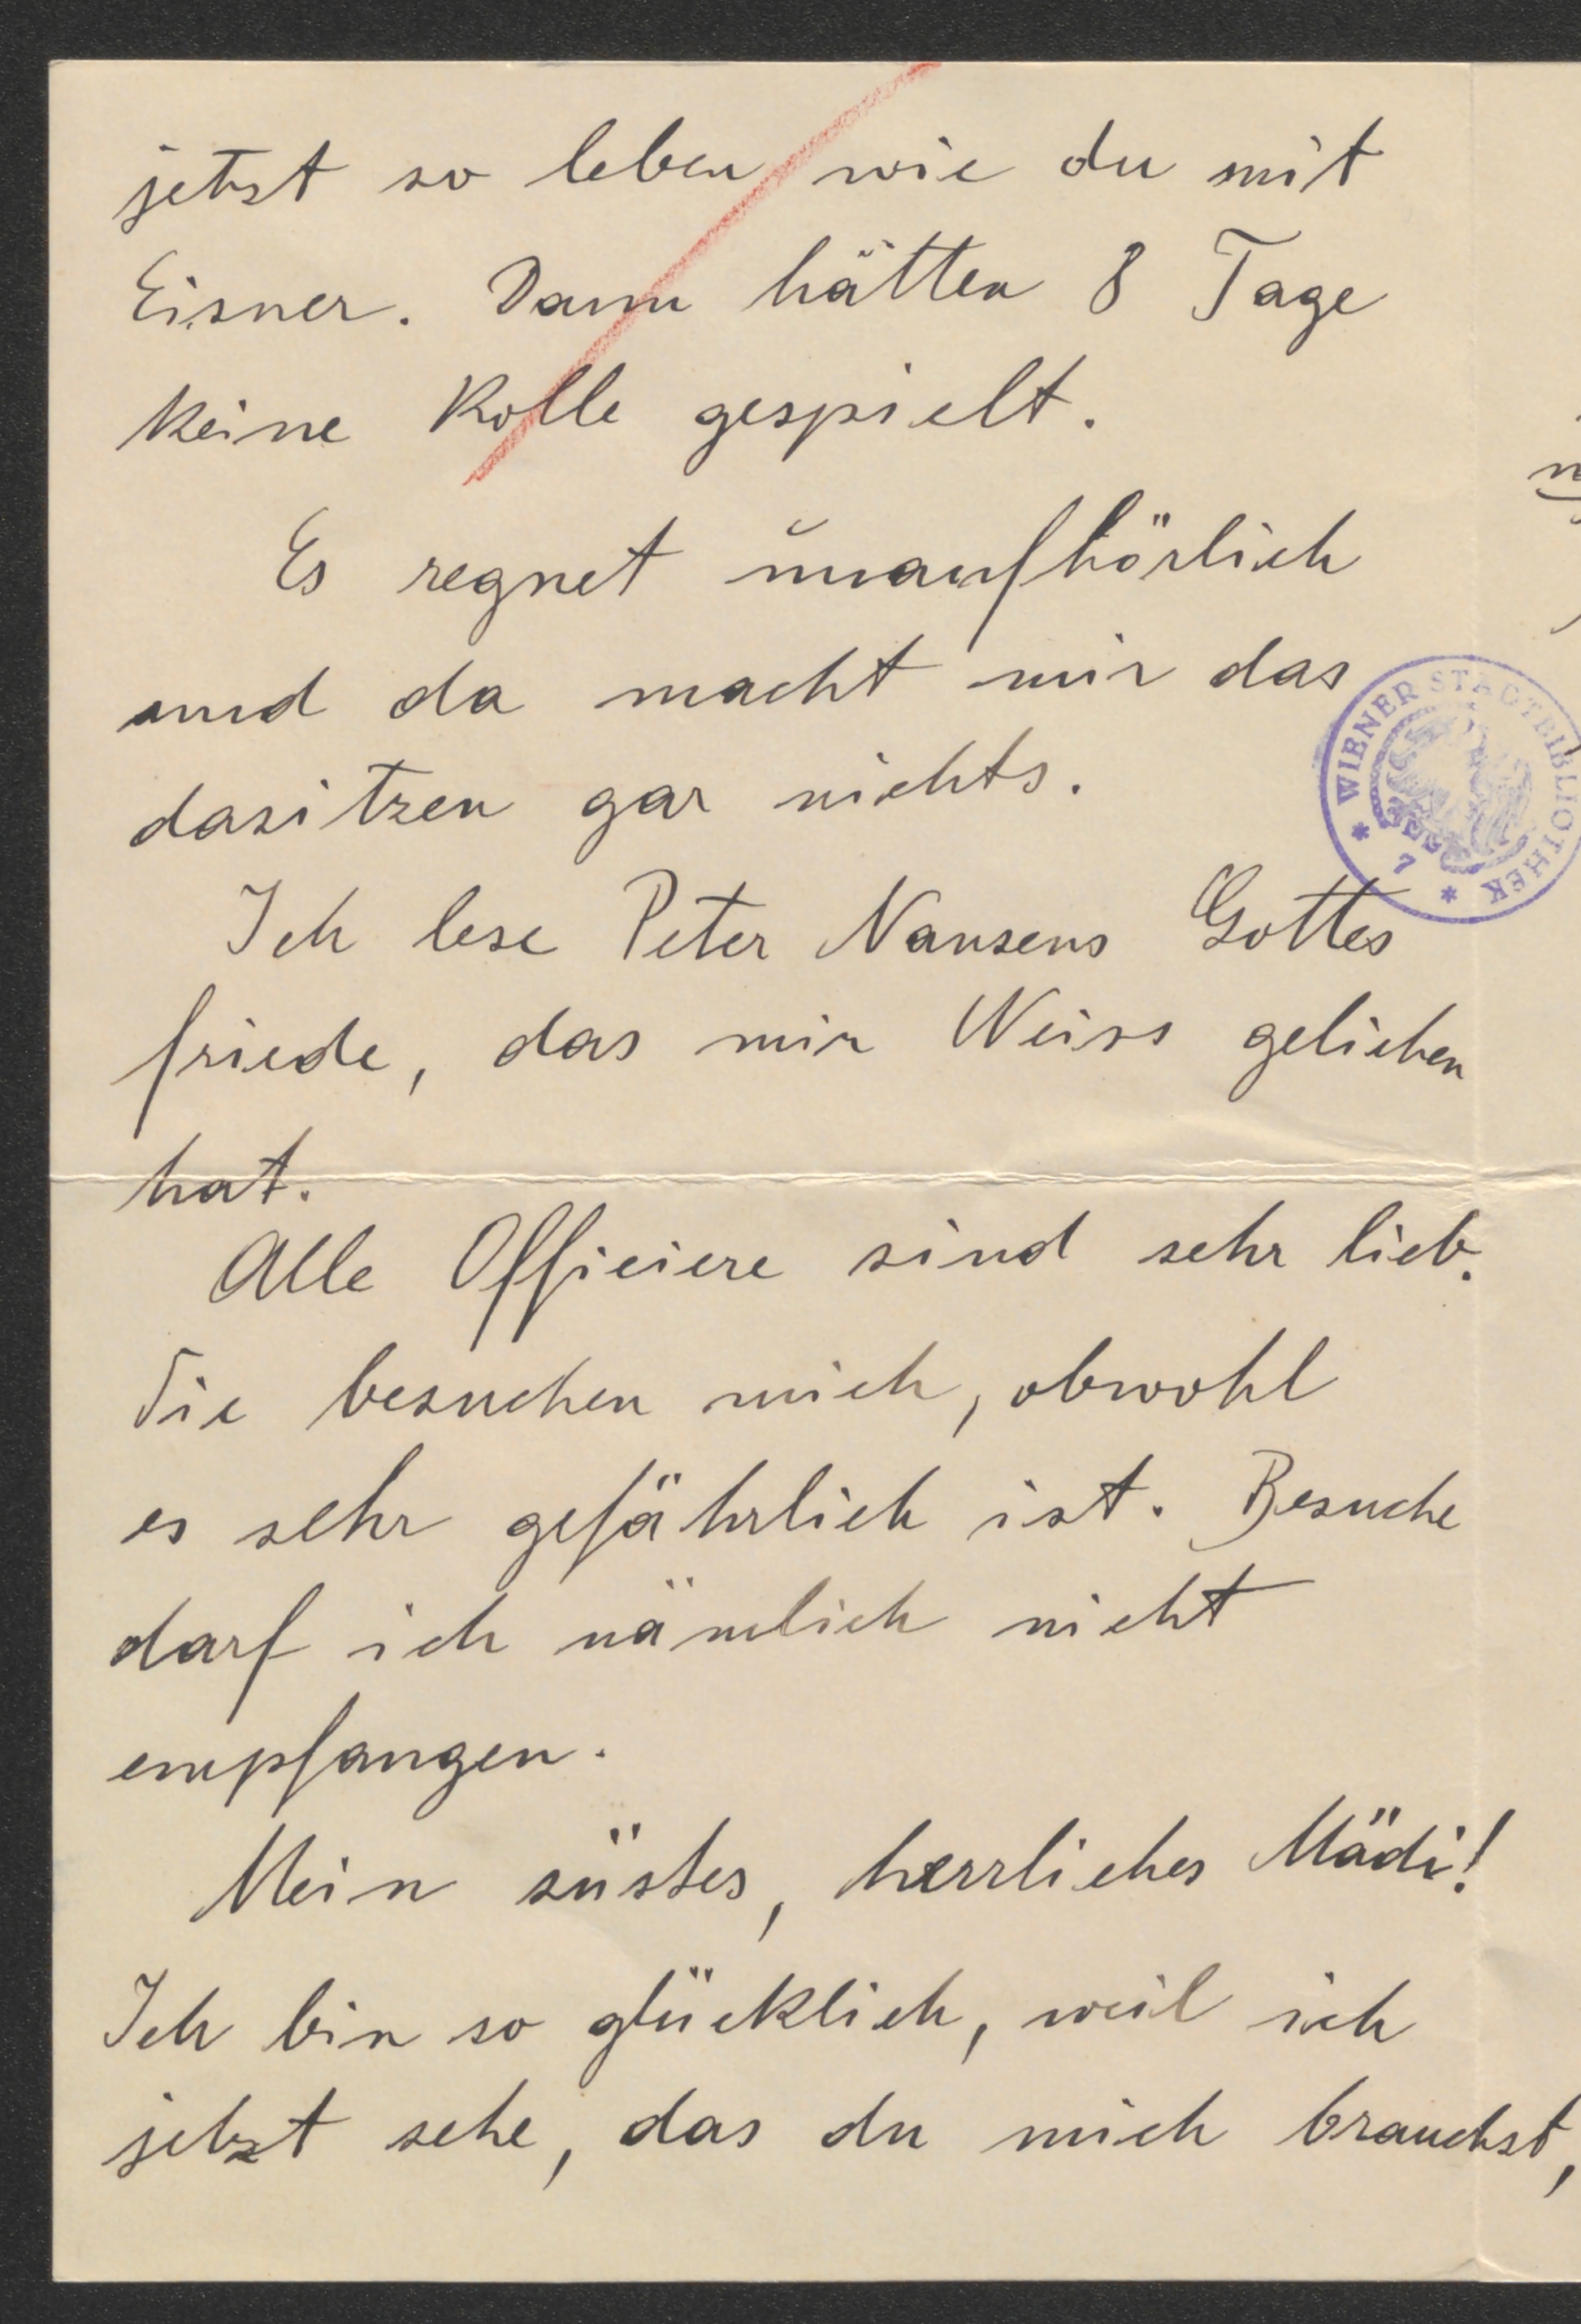 jetzt so leben wie du mit
Eisner. Dann hätten 8 Tage
keine Rolle gespielt.
Es regnet unaufhörlich
und da macht mir das
dasitzen gar nichts.
WIENER STADTBIBLIOTHEK
* 7 *
Ich lese Peter Nansens Gottes
friede, das mir Weiss geliehen
hat.
Alle Officiere sind sehr lieb.
Sie besuchen mich, obwohl
es sehr gefährlich ist. Besuche
darf ich nämlich nicht
empfangen.
Mein süstes, herrliches Mädi!
Ich bin so glücklich, weil ich
jetzt sehe, das du mich brauchst,